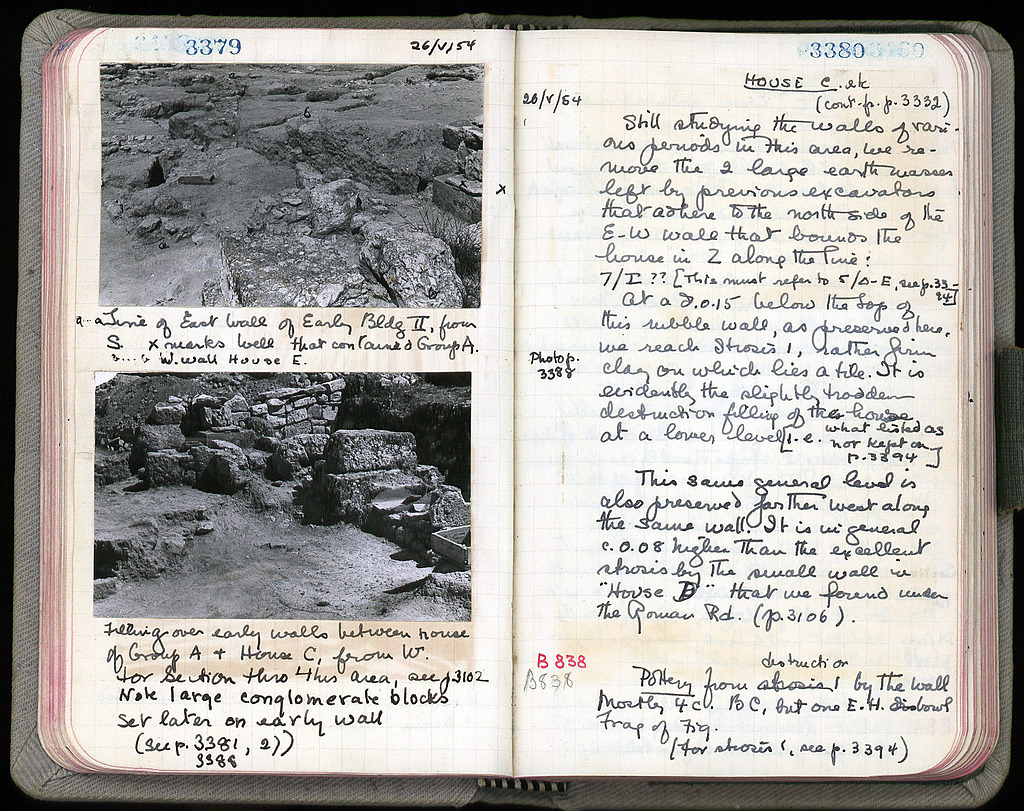 3379
26/V/54
a---a Line of East Wall of Early Bldg II, from
S. x marks well that contained Group A.
b....b W. wall House E.
x
Filling over early walls between House
of Group A + House C, from W.
For Section thro' this area, see p.3102
Note large conglomerate blocks
set later on early wall
(see p. 3381, 2))
3388
3380
HOUSE C. etc
26/V/54
(cont. fr. p. 3332)
Still studying the walls of vari-
ous periods in this area, we re-
move the 2 large earth masses
left by previous excavators
that adhere to the north side of the
E-W wall that bounds the
house in Z along the line:
7/I ?? [This must refer to 5/Δ-E, see p. 33-
94]
At a d. 0.15 below the top of
this rubble wall, as preserved here,
we reach strosis 1, rather firm
Photo p.
3388
clay on which lies a tile. It is
evidently the slightly trodden
destruction filling of the house
at a lower level [i.e. what listed as
not kept on
p. 3394]
This same general level is
also preserved farther west along
the same wall. It is in general
c. 0.08 higher than the excellent
strosis by the small wall in
"House B" that we found under
the Roman Rd. (p. 3106).
B 838
B838
destruction
Pottery from strosis 1 by the wall
Mostly 4 c. BC, but one E.H.
Frag of Fig.
(for strosis 1, see p. 3394)